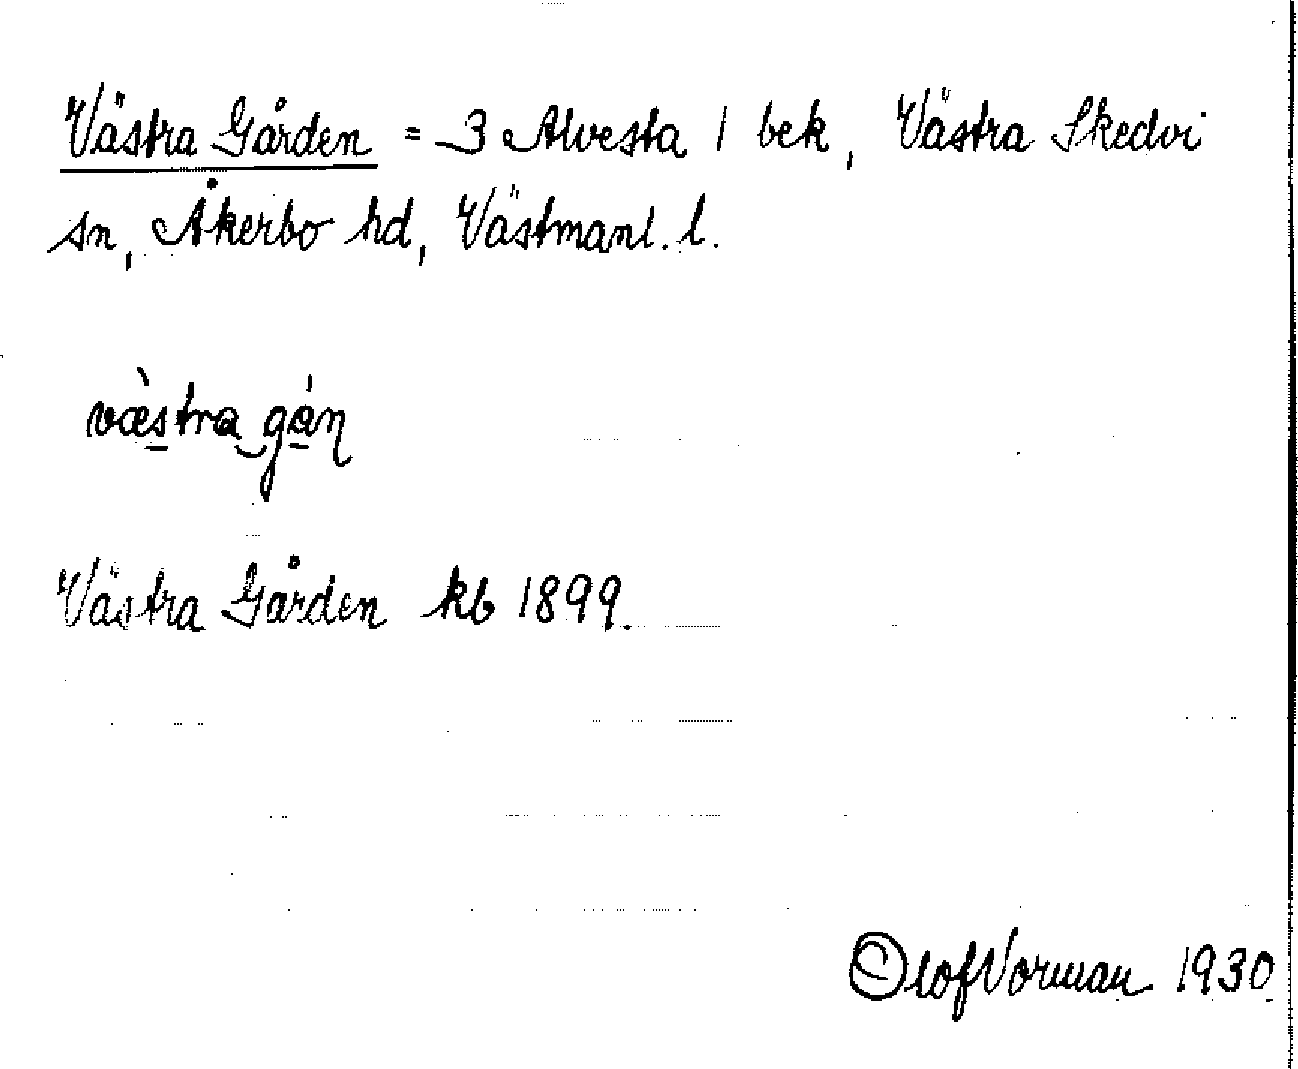 Västra Gården = 3 Alvesta 1 bek, Västra Skedvi
sn, Åkerbo hd, Västmanl. l.
væ̀stra gán
Västra Gården kb 1899.
Olof Vorman 1930